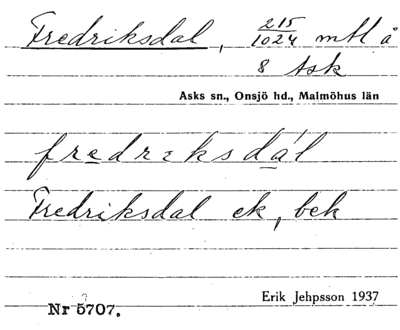 Fredriksdal, 215/1024 mtl å
8 Ask
Asks sn., Onsjö hd., Malmöhus län
fredriksdál
Fredriksdal ek, bek
Erik Jehpsson 1937
Nr 5707.